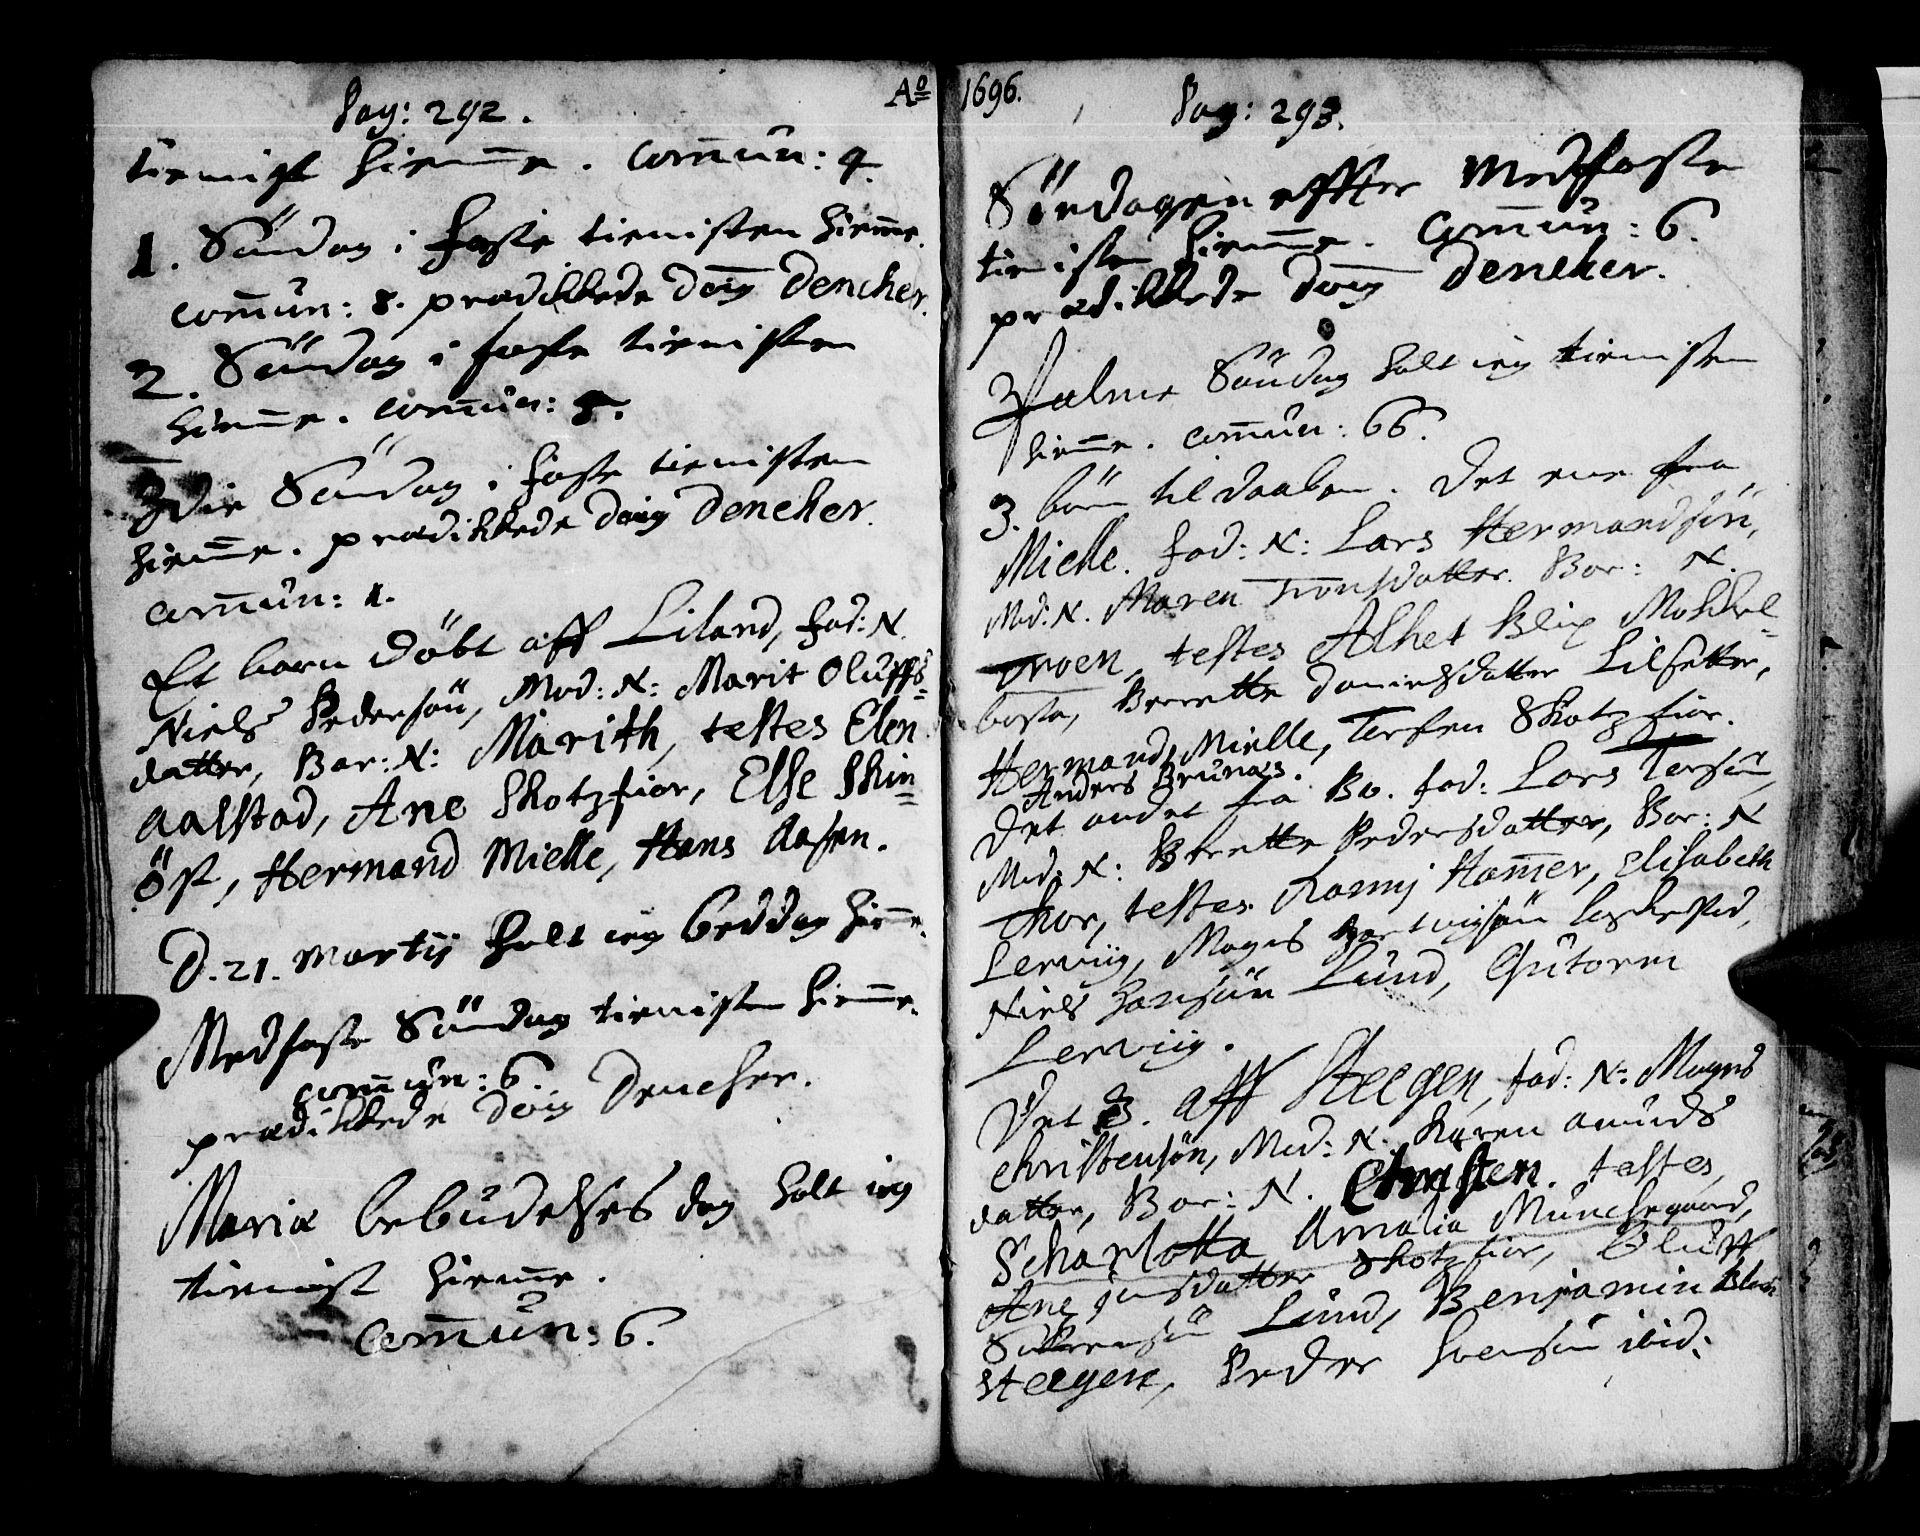 Pag: 292. Ao
tienist hiemme. Commun: 4.
1. Söndag i faste tienisten hiemme.
Commun: 8. prædikkede Doig Dencker.
2. Söndag i faste tienisten
hiemme. Commun: 8.
3die Söndag i faste tienisten
hiemme. prædikkede Doig Dencker.
Commun: 1.
Et barn döbt aff Liland, fad: N.
Niels Pedersön, Mod: N: Marit Oluffs=
datter, Bar: N: Marith, testes Elen
Aalstad, Ane Skotzfior, Else Skin=
öst, Hermand Mielle, Hans Aasen.
D. 21. Martij holt ieg beddag hiemme.
Medfaste Söndag tienisten hiemme.
Commun: 6.
prædikkede Doig Dencker.
Mariæ bebudelses dag holt ieg
tienist hiemme.
Commun: 6.
1696. Pag: 293.
Söndagen effter Medfaste
tienisten hiemme. Commun: 6.
prædikkede Doig Dencker.
Palme Söndag holt ieg tienisten
hiemme. Commun: 66.
3. börn til daaben. Det ene fra
Mielle. fad: N: Lars Hermandsön,
Mod: N. Maren Tronsdatter. Bar: N.
Troen, testes Alhet Blix Mokkel=
boste, Berrette Danielsdatter Lilsetter,
Hermand Mielle, Torsten Skotzfior.
Anders Brunæs.
Det andet fra Bo. fad: Lars Torsön,
Mod: N: Berette Pedersdatter, Bar: N
Thor, testes Hammer, Elisabeth
Lerviig, Mogns Hartvigsön
Niels Hansön Lund, Gutorm
Lerviig.
Det 3. aff Steegen, fad: N: Mogns
Christensön, Mod: N. Karen Amunds
datter, Bar: N. Christen. testes,
Scharlotta Amalia Munchegaard,
Ane Jensdatter Skotzfior, Oluff
Lund, Benjamin
Steegen, Peder Svensön ibid: